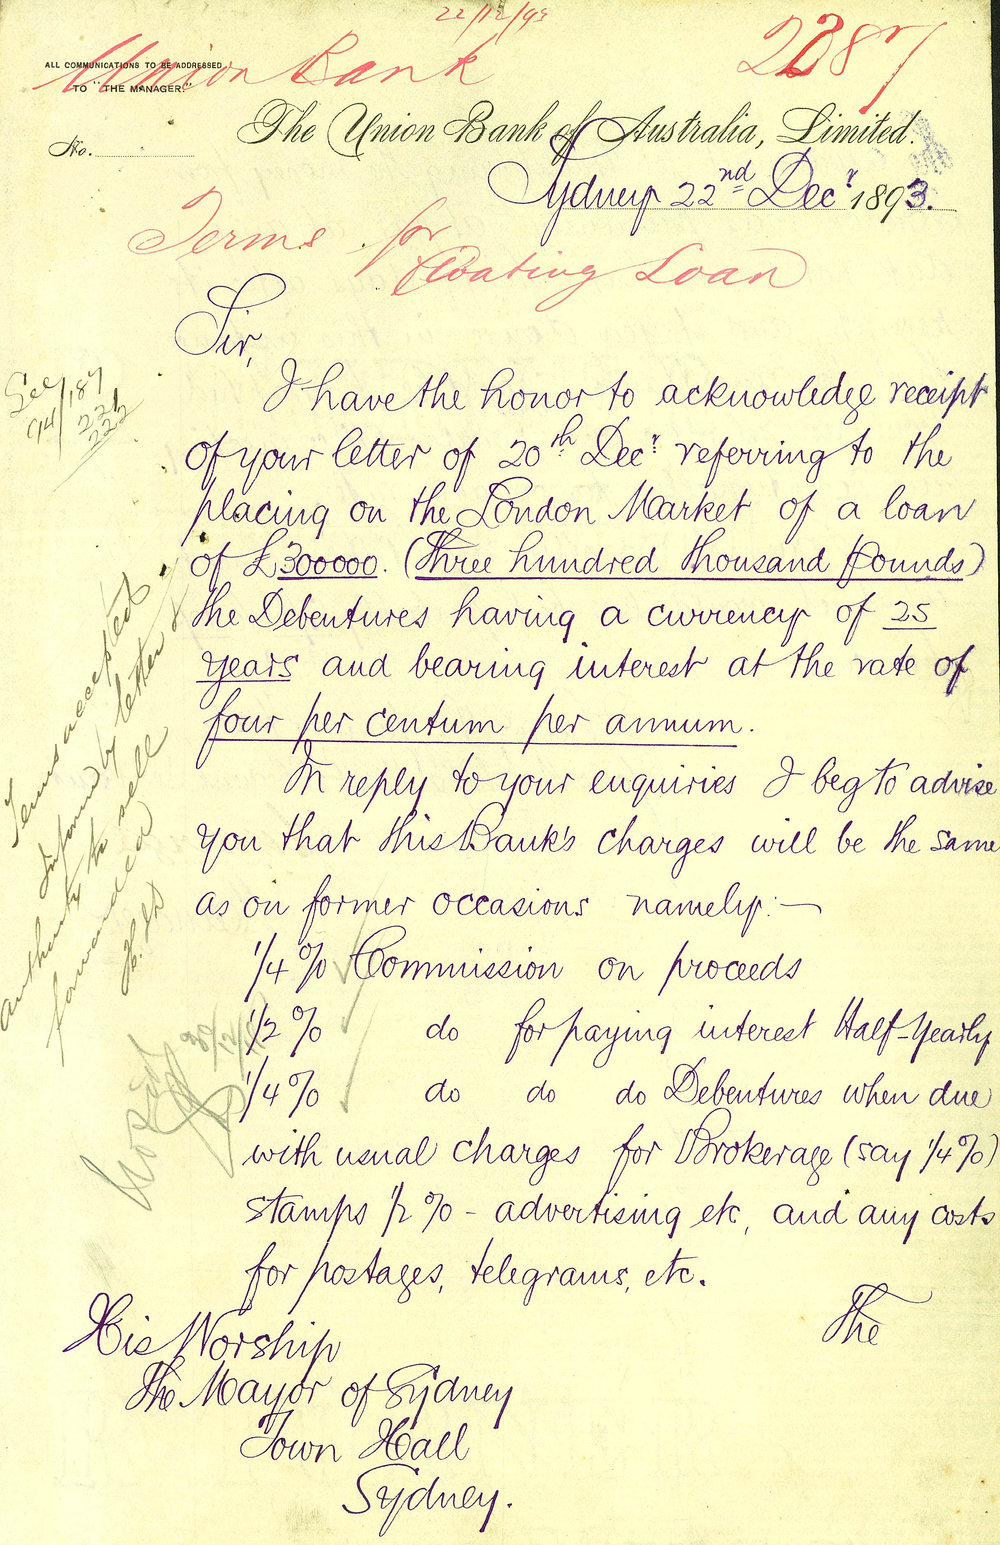 22/12/93
Union Bank
2287
ALL COMMUNICATIONS TO BE ADDRESSED
TO "THE MANAGER."
The Union Bank of Australia, Limited.
No.
Sydney 22nd Decr 1893.
Terms for
floating Loan
Sir,
I have the honor to acknowledge receipt
of your letter of 20th Decr referring to the
placing on the London Market of a loan
of £300000. (Three hundred thousand Pounds)
the Debentures having a currency of 25
years and bearing interest at the rate of
four per centum per annum.
In reply to your enquiries I beg to advise
you that this Bank's charges will be the same
as on former occasions namely:—
1/4 % Commission on proceeds
1/2 % do for paying interest Half-Yearly
1/4 % do do do Debentures when due
with usual charges for Brokerage (say 1/4 %)
stamps 1/2 % - advertising etc, and any costs
for postages, telegrams, etc.
The
His Worship
The Mayor of Sydney
Town Hall
Sydney.
See
94/187
221
222
Terms accepted
Informed by letter &
authority to sell
forwarded